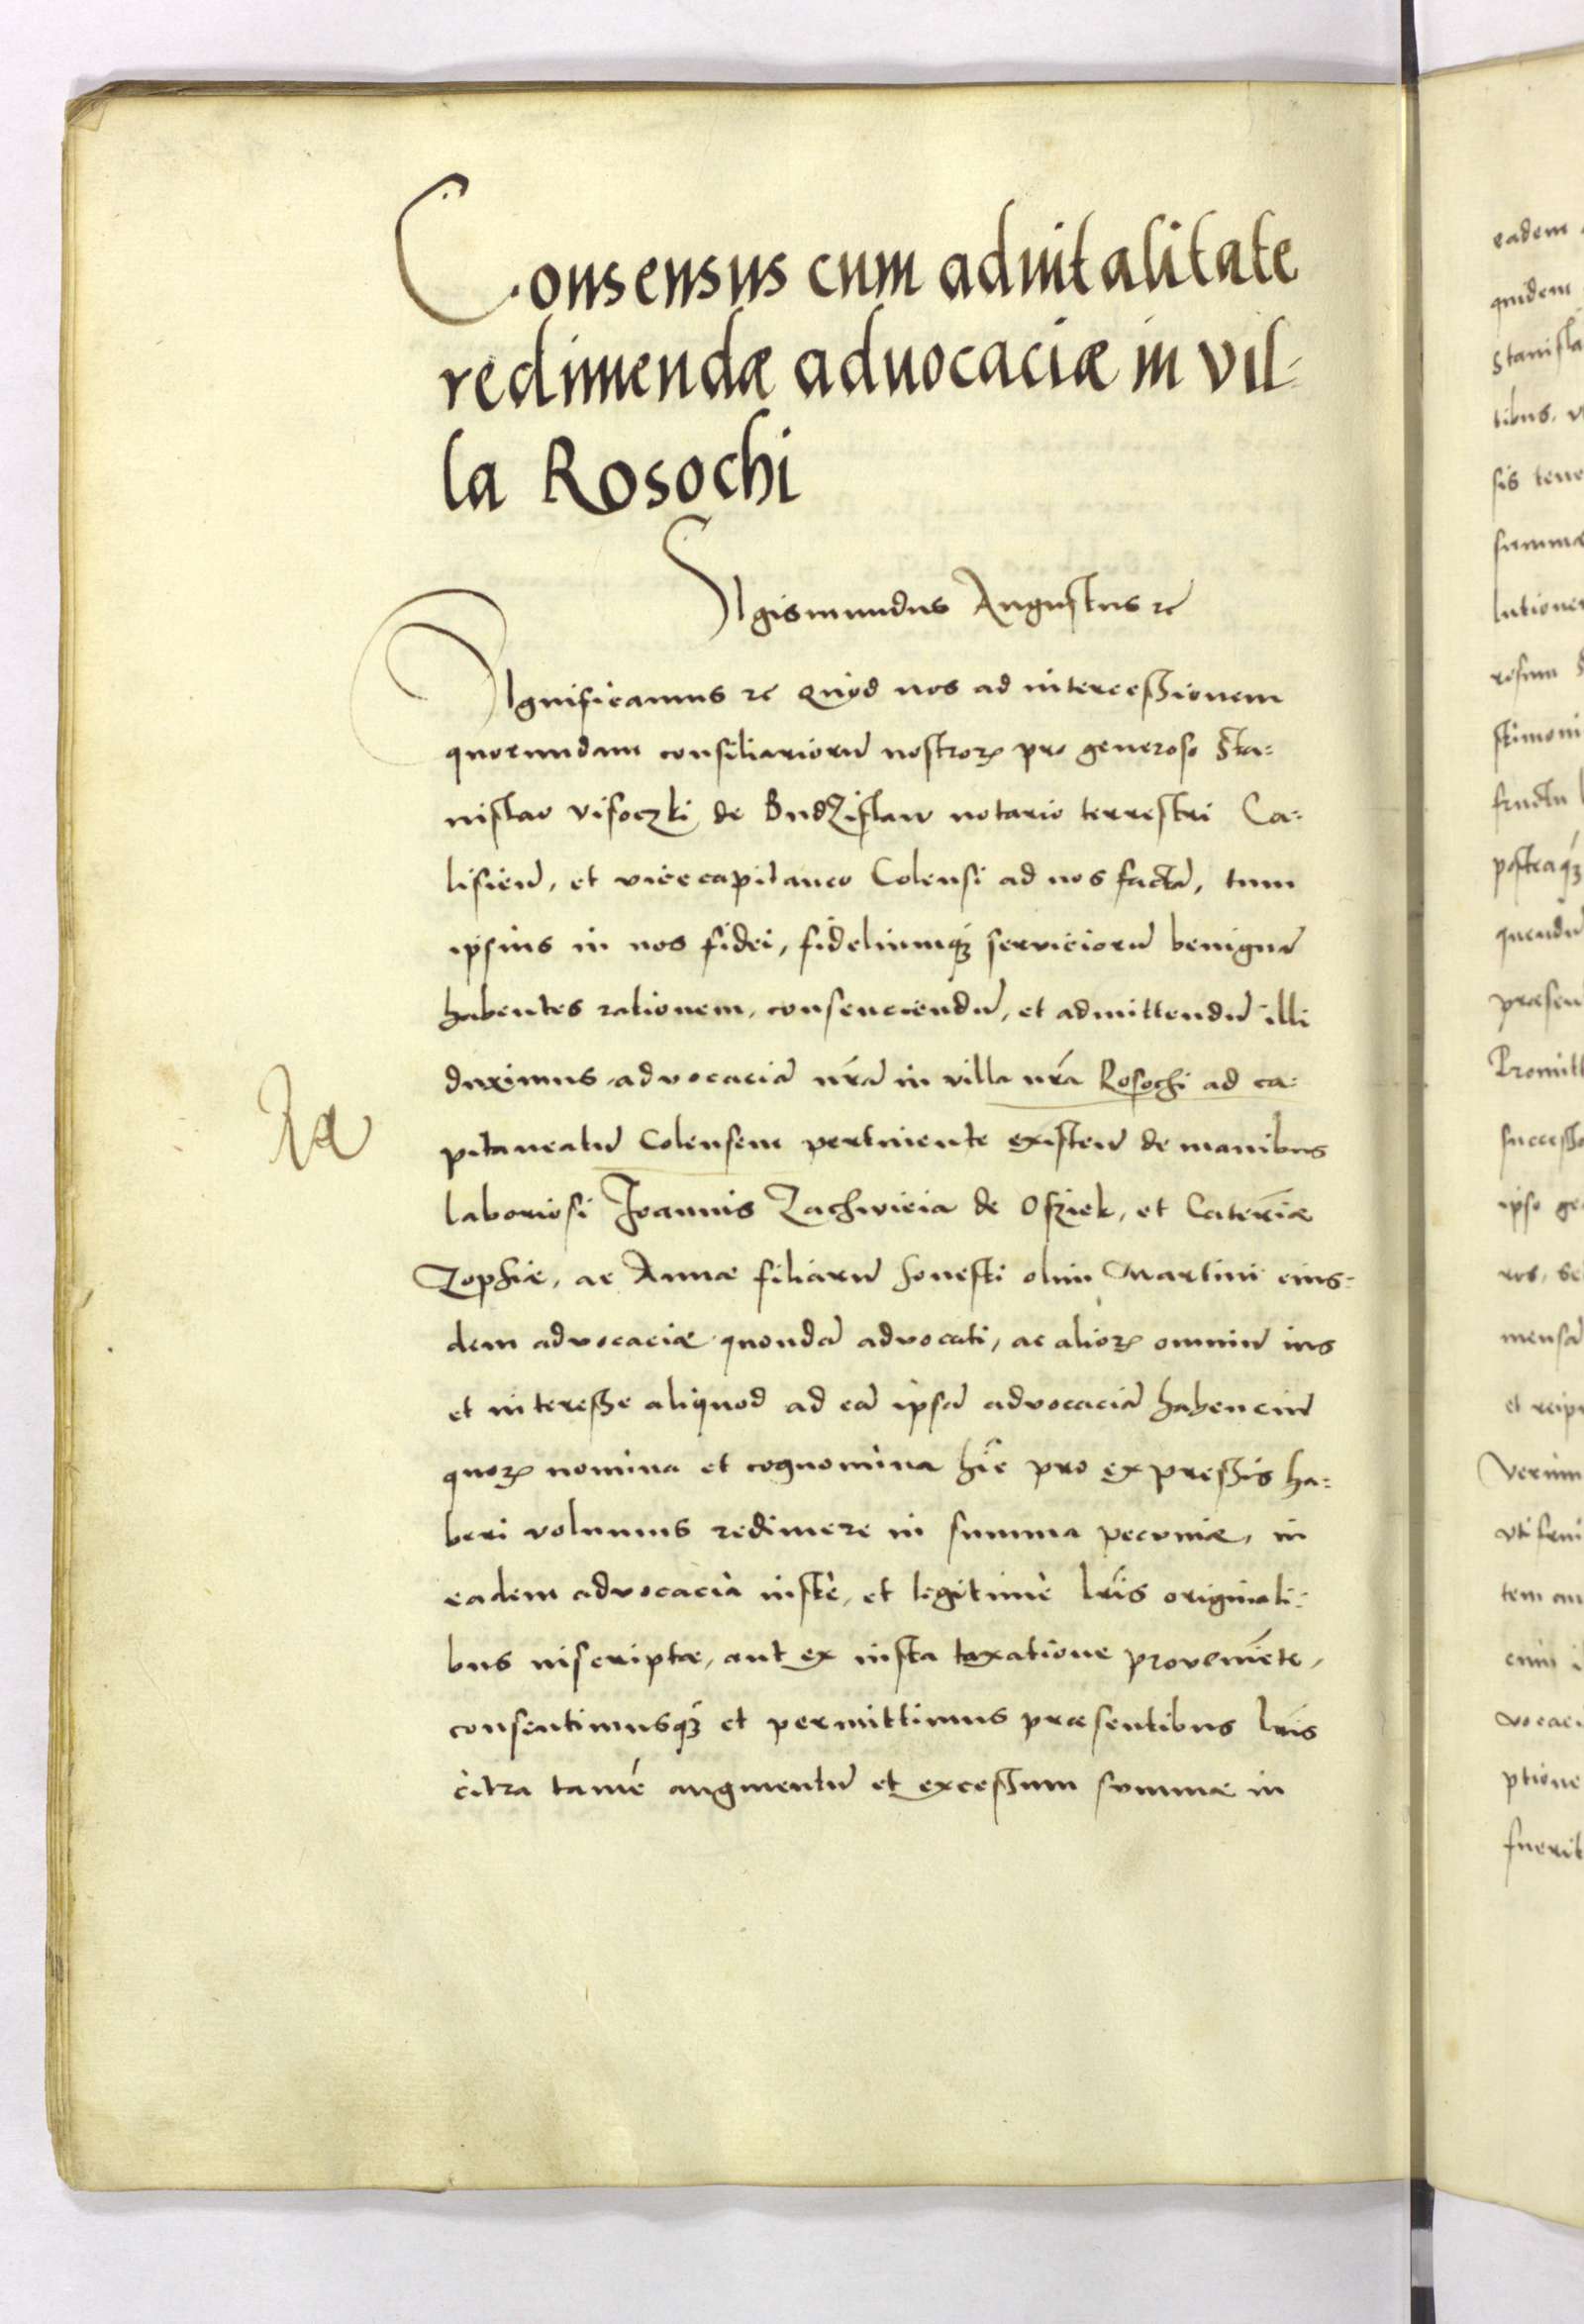 Consensus cum aduitalitate
redimendæ aduocaciæ in vil=
la Rosochi
Sigismundus Augustus &c
Significamus &c Quod nos ad intercessionem
quorundam consiliariorū nostroꝝ pro generoso Sta=
nislao Visoczki de Budzislaw notario terrestri Ca=
lisień, et vicecapitaneo Colensi ad nos factā, tum
ipsius in nos fidei, fideliumqꝫ serviciorū benignā
habentes rationem, consenciendū, et admittendū illi
duximus, advocaciā nr̃ā in villa nr̃a Rosochi ad ca=
pitaneatū Colensem pertinente existeñ de manibus
laboriosi Joannis Zachwieia de Osziek, et Caterīæ
Zophiæ, ac Annæ filiarū honesti olim Martini eius=
dem advocaciæ quondā advocati, ac alioꝝ omniū ius
et interesse aliquod ad eā ipsā advocaciā habenciū
quoꝝ nomina et cognomina hīc pro expressis ha=
beri volumus redimere in summa pecuniæ, in
eadem advocacia iustè, et legitimè lr̃is originali=
bus inscriptæ, aut ex iusta taxatione proveniēte,
consentimusqꝫ et permittimus præsentibus lr̃is
citra tamē augmentū et excessum summæ in
eadem
quidem
Stanisla
tibus, v
sis tene
summæ
lutionem
stimoni
fructu
posteaqꝫ
quendū
præsen
Promitt
successo
ipso ge
mensā
et recip
Verum
tem au
vocaci
ptione
fuerit